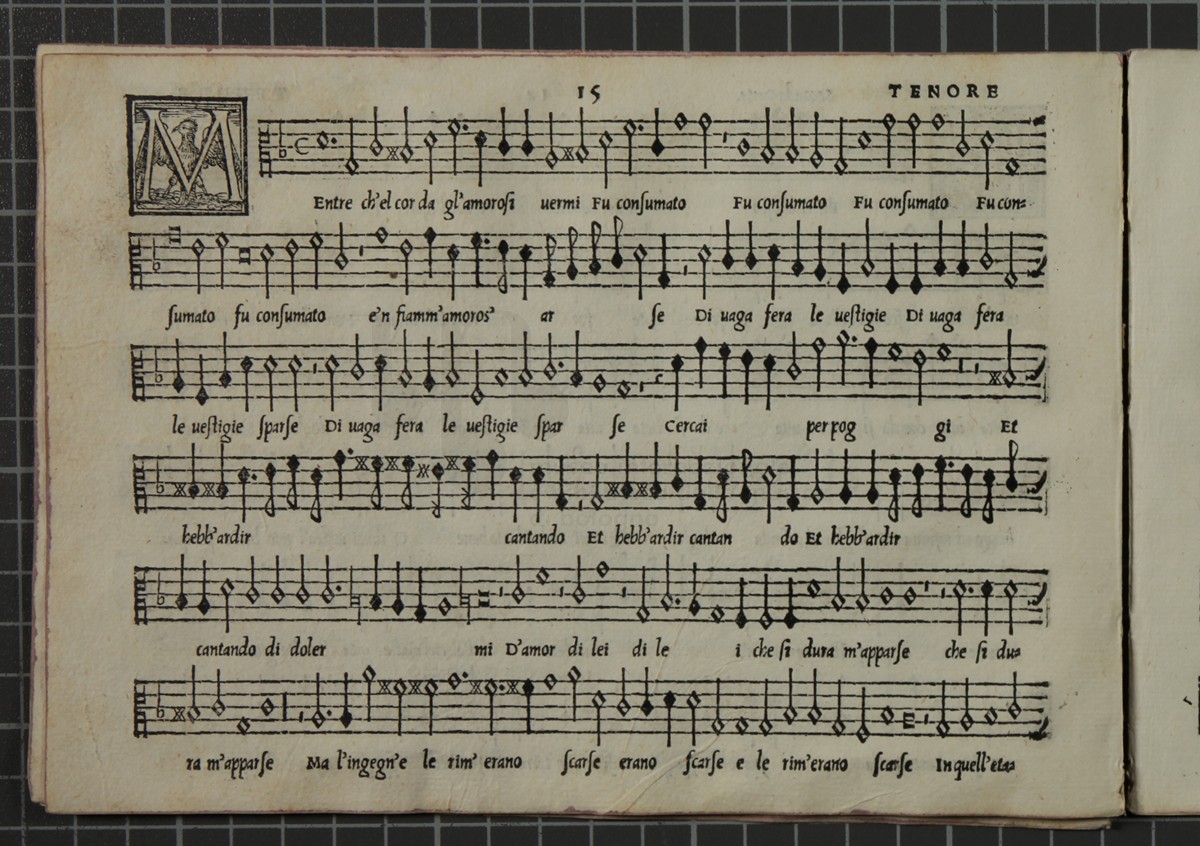 15 TENORE
MEntre ch'el cor da gl'amorosi uermi Fu consumato Fu consumato Fu consumato Fu con-
sumato fu consumato e'n fiamm'amoros' ar se Di uaga fera le uestigie Di uaga fera
le uestigie sparse Di uaga fera le uestigie spar se Cercai per pog gi Et
hebb'ardir cantando Et hebb'ardir cantan do Et hebb'ardir
cantando di doler mi D'amor di lei di le i che si dura m'apparse che si du-
ra m'apparse Ma l'ingegn'e le rim' erano scarse erano scarse e le rim'erano scarse In quell'eta-